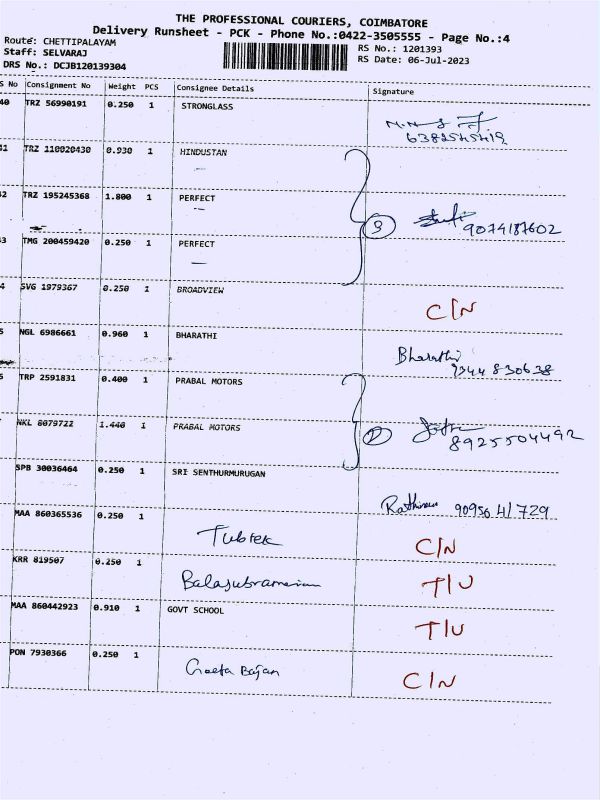 THE PROFESSIONAL COURIERS, COIMBATORE
Delivery Runsheet - PCK - Phone No.:0422-3505555 - Page No.:4
Route: CHETTIPALAYAM
Staff: SELVARAJ
DRS No.: DCJB120139304
RS No.: 1201393
RS Date: 06-Jul-2023
S No Consignment No Weight PCS Consignee Details Signature
40 TRZ 56990191 0.250 1 STRONGLASS
6382545419
41 TRZ 110020430 0.930 1 HINDUSTAN
42 TRZ 195245368 1.800 1 PERFECT
3 9074187602
43 TMG 200459420 0.250 1 PERFECT
4 SVG 1979367 0.250 1 BROADVIEW C/N
5 NGL 6986661 0.960 1 BHARATHI Bharathi
9344830638
6 TRP 2591831 0.400 1 PRABAL MOTORS
2
NKL 8079722 1.440 1 PRABAL MOTORS 8925504492
SPB 30036464 0.250 1 SRI SENTHURMURUGAN
9095641729
MAA 860365536 0.250 1 Tubtek C/N
KRR 819507 0.250 1 Balasubramanian T/U
MAA 860442923 0.910 1 GOVT SCHOOL T/U
PON 7930366 0.250 1 Geeta Bajan C/N